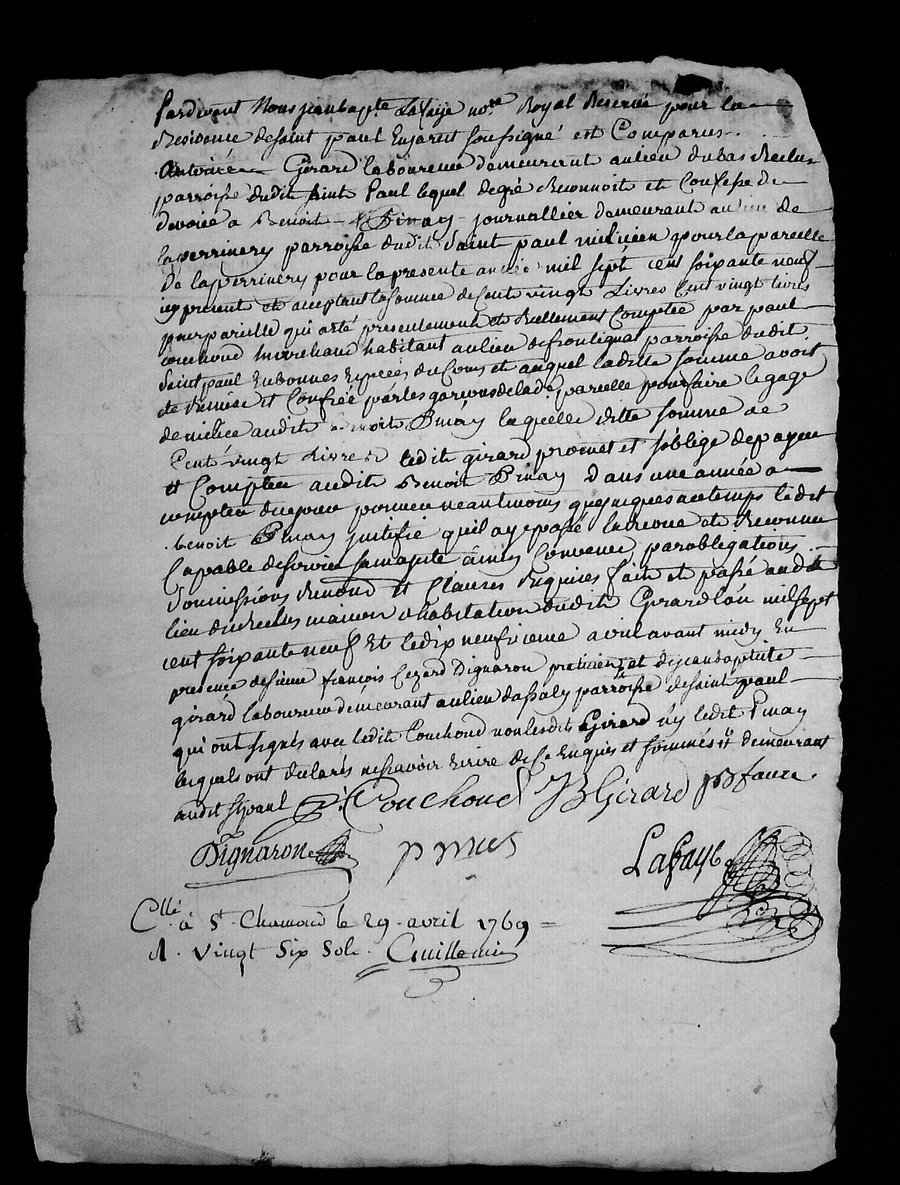 Pardevant Nous jean bapte. Lafaye nore. Royal Reservé pour la
Residence de saint paul Enjarest soussigné est Comparus
Antoine Girard laboureur demeurant au lieu du bas Reclus
parroisse dudit saint Paul lequel degré Reconnoit et Confesse
devoir a Benoit Pinay journallier demeurant au lieu de
la perrinery parroisse dudit saint paul milicien pour la parcelle
De la perrinery pour la presente année mil sept cent soixante neuf
icy present et acceptant la somme de Cent vingt Livres Cent vingt livres
pour pareille qui a eté presentement et Reellement Comptée par paul
Couchoud marchand habitant au lieu de parroisse dudit
saint paul En bonnes Especes du Cours et auquel laditte somme avoit
eté Remise et Confiée par les garcons de lade. parcelle pour faire le gage
de milice audit Benoit Pinay laquelle ditte somme de
Cent vingt Livres ledit girard promet et s'oblige de payer
et Compter audit Benoit Pinay Dans une année a
compter du jour moyenneant qu'en ce temps ledit
benoit Pinay justifie qu'il aye passé la revue et Reconnu
Capable de servir sa majesté ainsy Convenu par obligations
soumissions Renond. et Clauses Requises fait et passé audit
lieu du Reclus maison d'habitation dudit Girard l'an mil sept
cent soixante neuf Et le dix neufvieme avril avant midy En
presence de sieur françois Cezard Dignaron praticien et de jean baptiste
girard laboureur demeurant au lieu dassaly parroisse de saint paul
qui ont signés avec ledit Couchoud non lesdits Girard ny ledit Pinay
lesquels ont declarés ne sçavoir Ecrire de ce Enquis et sommés demeurant
audit st paul P. Couchoud JB Girard
Dignaron Lafaye
Cllé. à St. Chamond le 29. avril 1769
R. vingt Six Sols. Guillemin